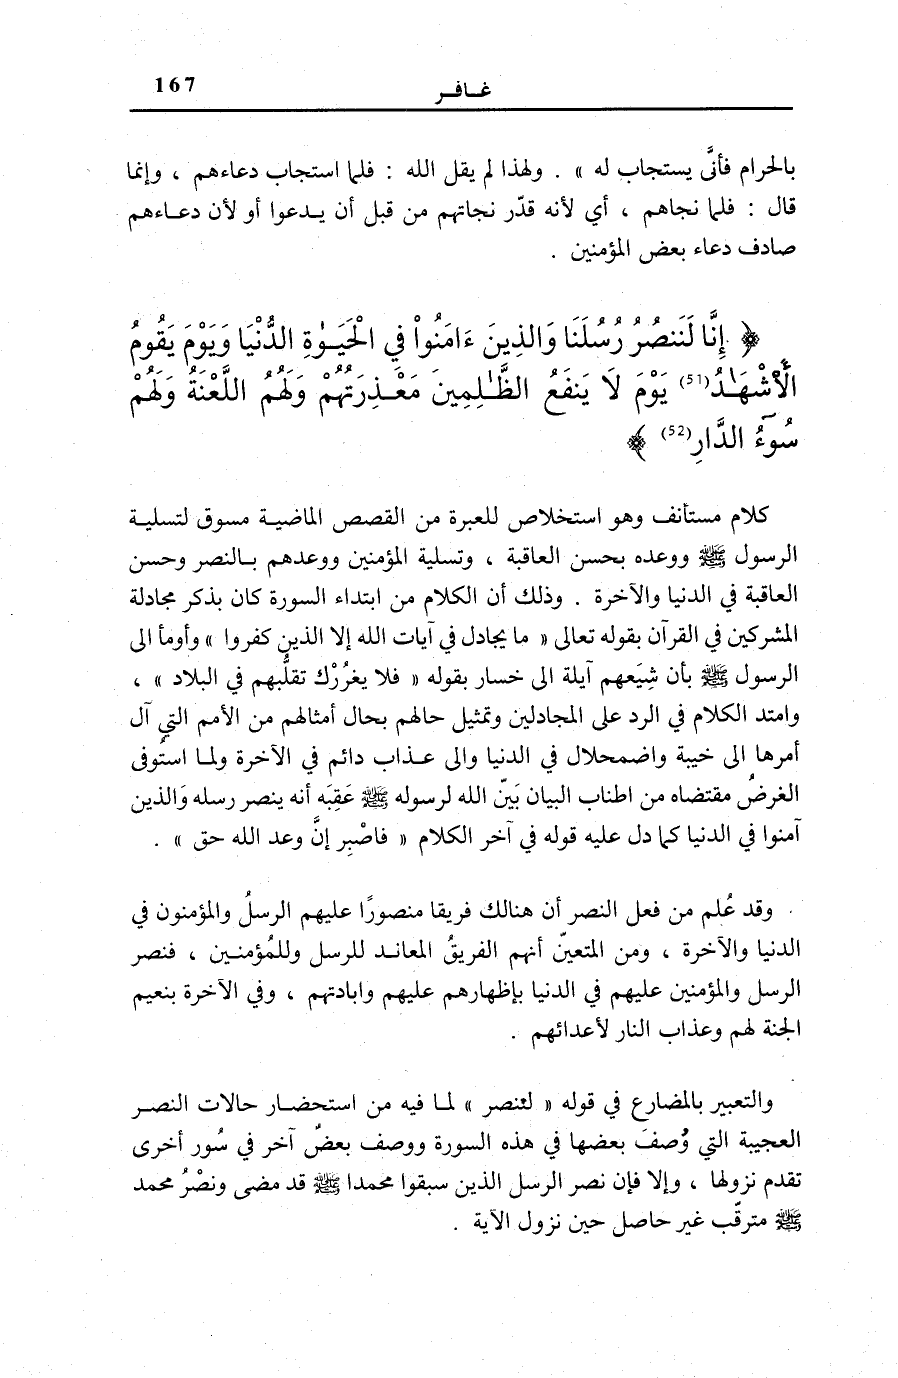 167
غـافـر
بالحرام فأنَّى يستجاب له » . ولهذا لم يقل الله : فلما استجاب دعاءهم ، وإنما
قال : فلما نجاهم ، أي لأنه قدّر نجاتهم من قبل أن يـدعوا أو لأن دعـاءهم
صادف دعاء بعض المؤمنين .
﴿ إِنَّا لَنَنصُرُ رُسُلَنَا وَالذِينَ ءَامَنُواْ فِي الْحَيَـوٰةِ الدُّنْيَا وَيَوْمَ يَقُومُ
الْأَشْهَـٰدُ(51) يَوْمَ لَا يَنفَعُ الظَّـٰلِمِينَ مَعْـذِرَتُهُمْ وَلَهُمُ اللَّعْنَةُ وَلَهُمْ
سُوٓءُ الدَّارِ(52) ﴾
كلام مستأنف وهو استخلاص للعبرة من القصص الماضيـة مسوق لتسليـة
الرسول ﷺ ووعده بحسن العاقبة ، وتسلية المؤمنين ووعدهم بـالنصر وحسن
العاقبة في الدنيا والآخرة . وذلك أن الكلام من ابتداء السورة كان بذكر مجادلة
المشركين في القرآن بقوله تعالى « ما يجادل في آيات الله إلا الذين كفروا » وأومأ الى
الرسول ﷺ بأن شِيَعهم آيلة الى خسار بقوله « فلا يغرُرْك تقلُّبهم في البلاد » ،
وامتد الكلام في الرد على المجادلين وتمثيل حالهم بحال أمثالهم من الأمم التي آل
أمرها الى خيبة واضمحلال في الدنيا والى عـذاب دائم في الآخرة ولمـا استُوفى
الغرضُ مقتضاه من اطناب البيان بَيّن الله لرسوله ﷺ عَقِبَه أنه ينصر رسله وَالذين
آمنوا في الدنيا كما دل عليه قوله في آخر الكلام « فاصْبِر إنَّ وعد الله حق » .
وقد عُلم من فعل النصر أن هنالك فريقا منصورًا عليهم الرسلُ والمؤمنون في
الدنيا والآخرة ، ومن المتعينّ أنهم الفريقُ المعانـد للرسل وللمُؤمنـين ، فنصر
الرسل والمؤمنين عليهم في الدنيا بإظهارهم عليهم وابادتهم ، وفي الآخرة بنعيم
الجنة لهم وعذاب النار لأعدائهم .
والتعبير بالمضارع في قوله « لننصر » لمـا فيه من استحضـار حالات النصـر
العجيبة التي وُصفَ بعضها في هذه السورة ووصف بعضٌ آخر في سُور أخرى
تقدم نزولها ، وإلا فإن نصر الرسل الذين سبقوا محمدا ﷺ قد مضى ونصْرُ محمد
ﷺ مترقّب غير حاصل حين نزول الآية .